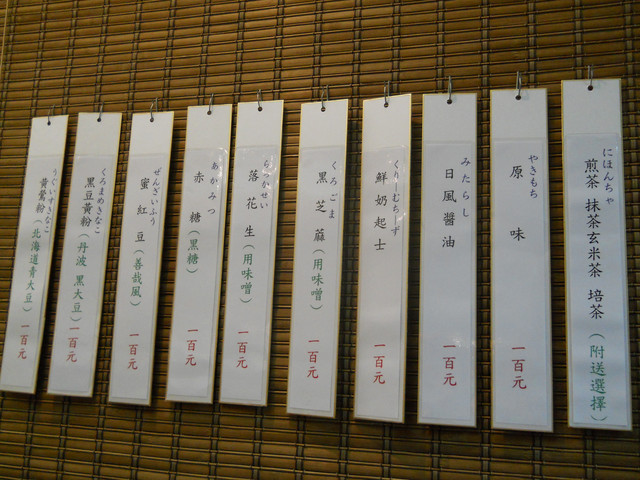 にほんちゃ
煎茶 抹茶玄米茶 培茶(附送選擇)
やきもち
原味 一百元
みたらし
日風醬油 一百元
くりーむちーず
鮮奶起士 一百元
くろごま
黑芝蔴(用味噌) 一百元
らっかせい
落花生(用味噌) 一百元
あかみつ
赤糖(黑糖) 一百元
ぜんざいふう
蜜紅豆(善哉風) 一百元
くろまめきなこ
黑豆黃粉(丹波 黑大豆) 一百元
うぐいすきなこ
黃鶯粉(北海道青大豆) 一百元